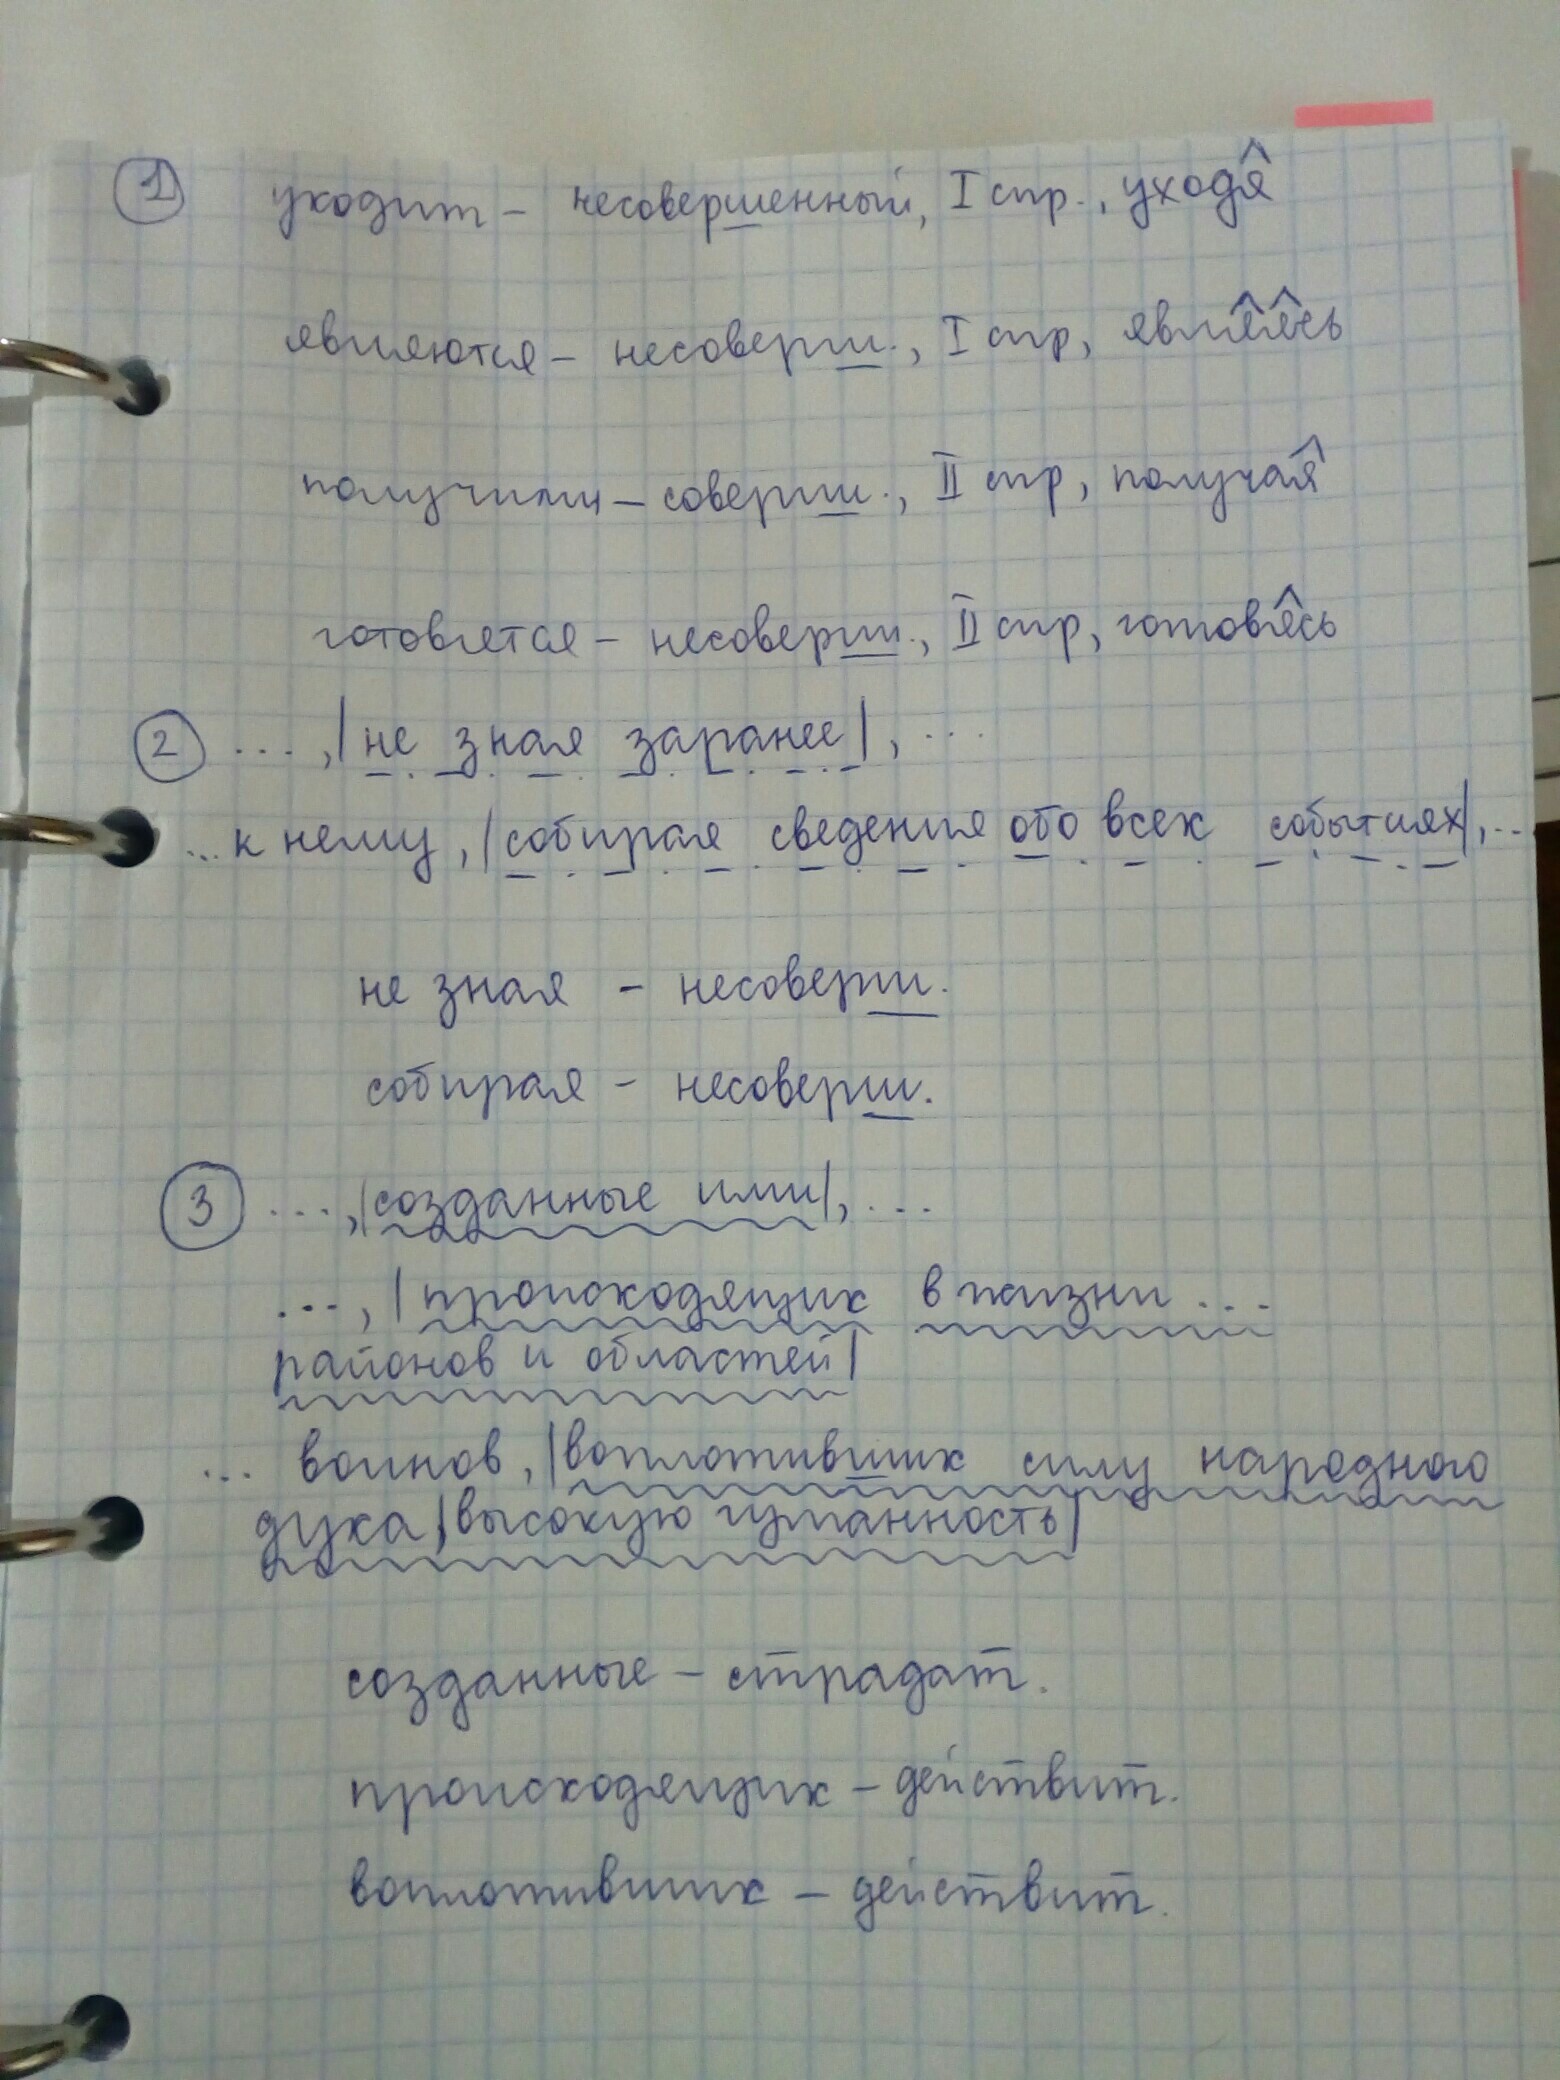 1 уходит - несовершенный, I спр., уходя
являются - несоверш., I спр, являясь
получили - соверш., II спр, получая
готовятся - несоверш., II спр, готовясь
2 ..., |не зная заранее|, ...
... к нему, |собирая сведения обо всех событиях|, ...
не зная - несоверш.
собирая - несоверш.
3 ..., |созданные ими|, ...
..., |происходящих в жизни ...
районов и областей|
... воинов, |воплотивших силу народного
духа, высокую гуманность|
созданные - страдат.
происходящих - действит.
воплотивших - действит.